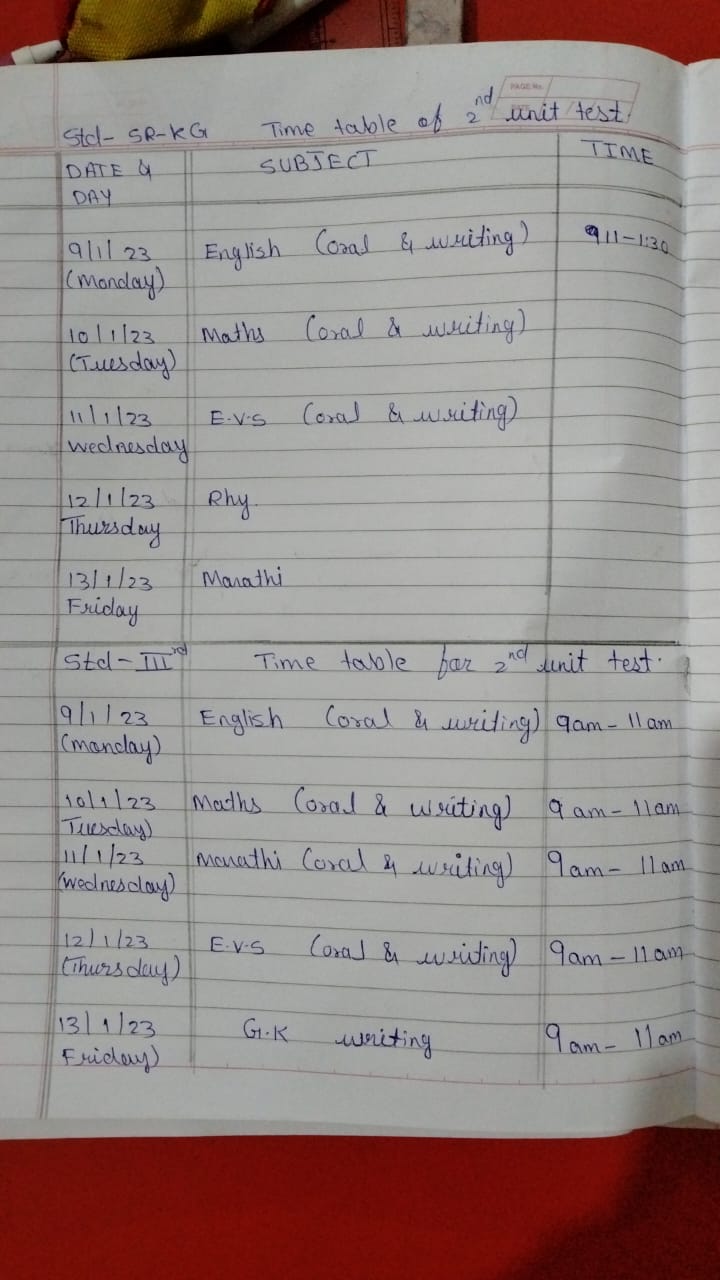 PAGE No.
Std- SR-KG Time table of 2nd unit test
DATE & SUBJECT TIME
DAY
9/1/23 English (oral & writing) 11-1:30
(Monday)
10/1/23 Maths (oral & writing)
(Tuesday)
11/1/23 E.V.S (oral & writing)
Wednesday
12/1/23 Rhy.
Thursday
13/1/23 Marathi
Friday
Std-IIIrd Time table for 2nd unit test.
9/1/23 English (oral & writing) 9am-11am
(Monday)
10/1/23 Maths (oral & writing) 9am-11am
Tuesday)
11/1/23 Marathi (oral & writing) 9am-11am
(Wednesday)
12/1/23 E.V.S (oral & writing) 9am-11am
(Thursday)
13/1/23 G.K writing 9am-11am
Friday)